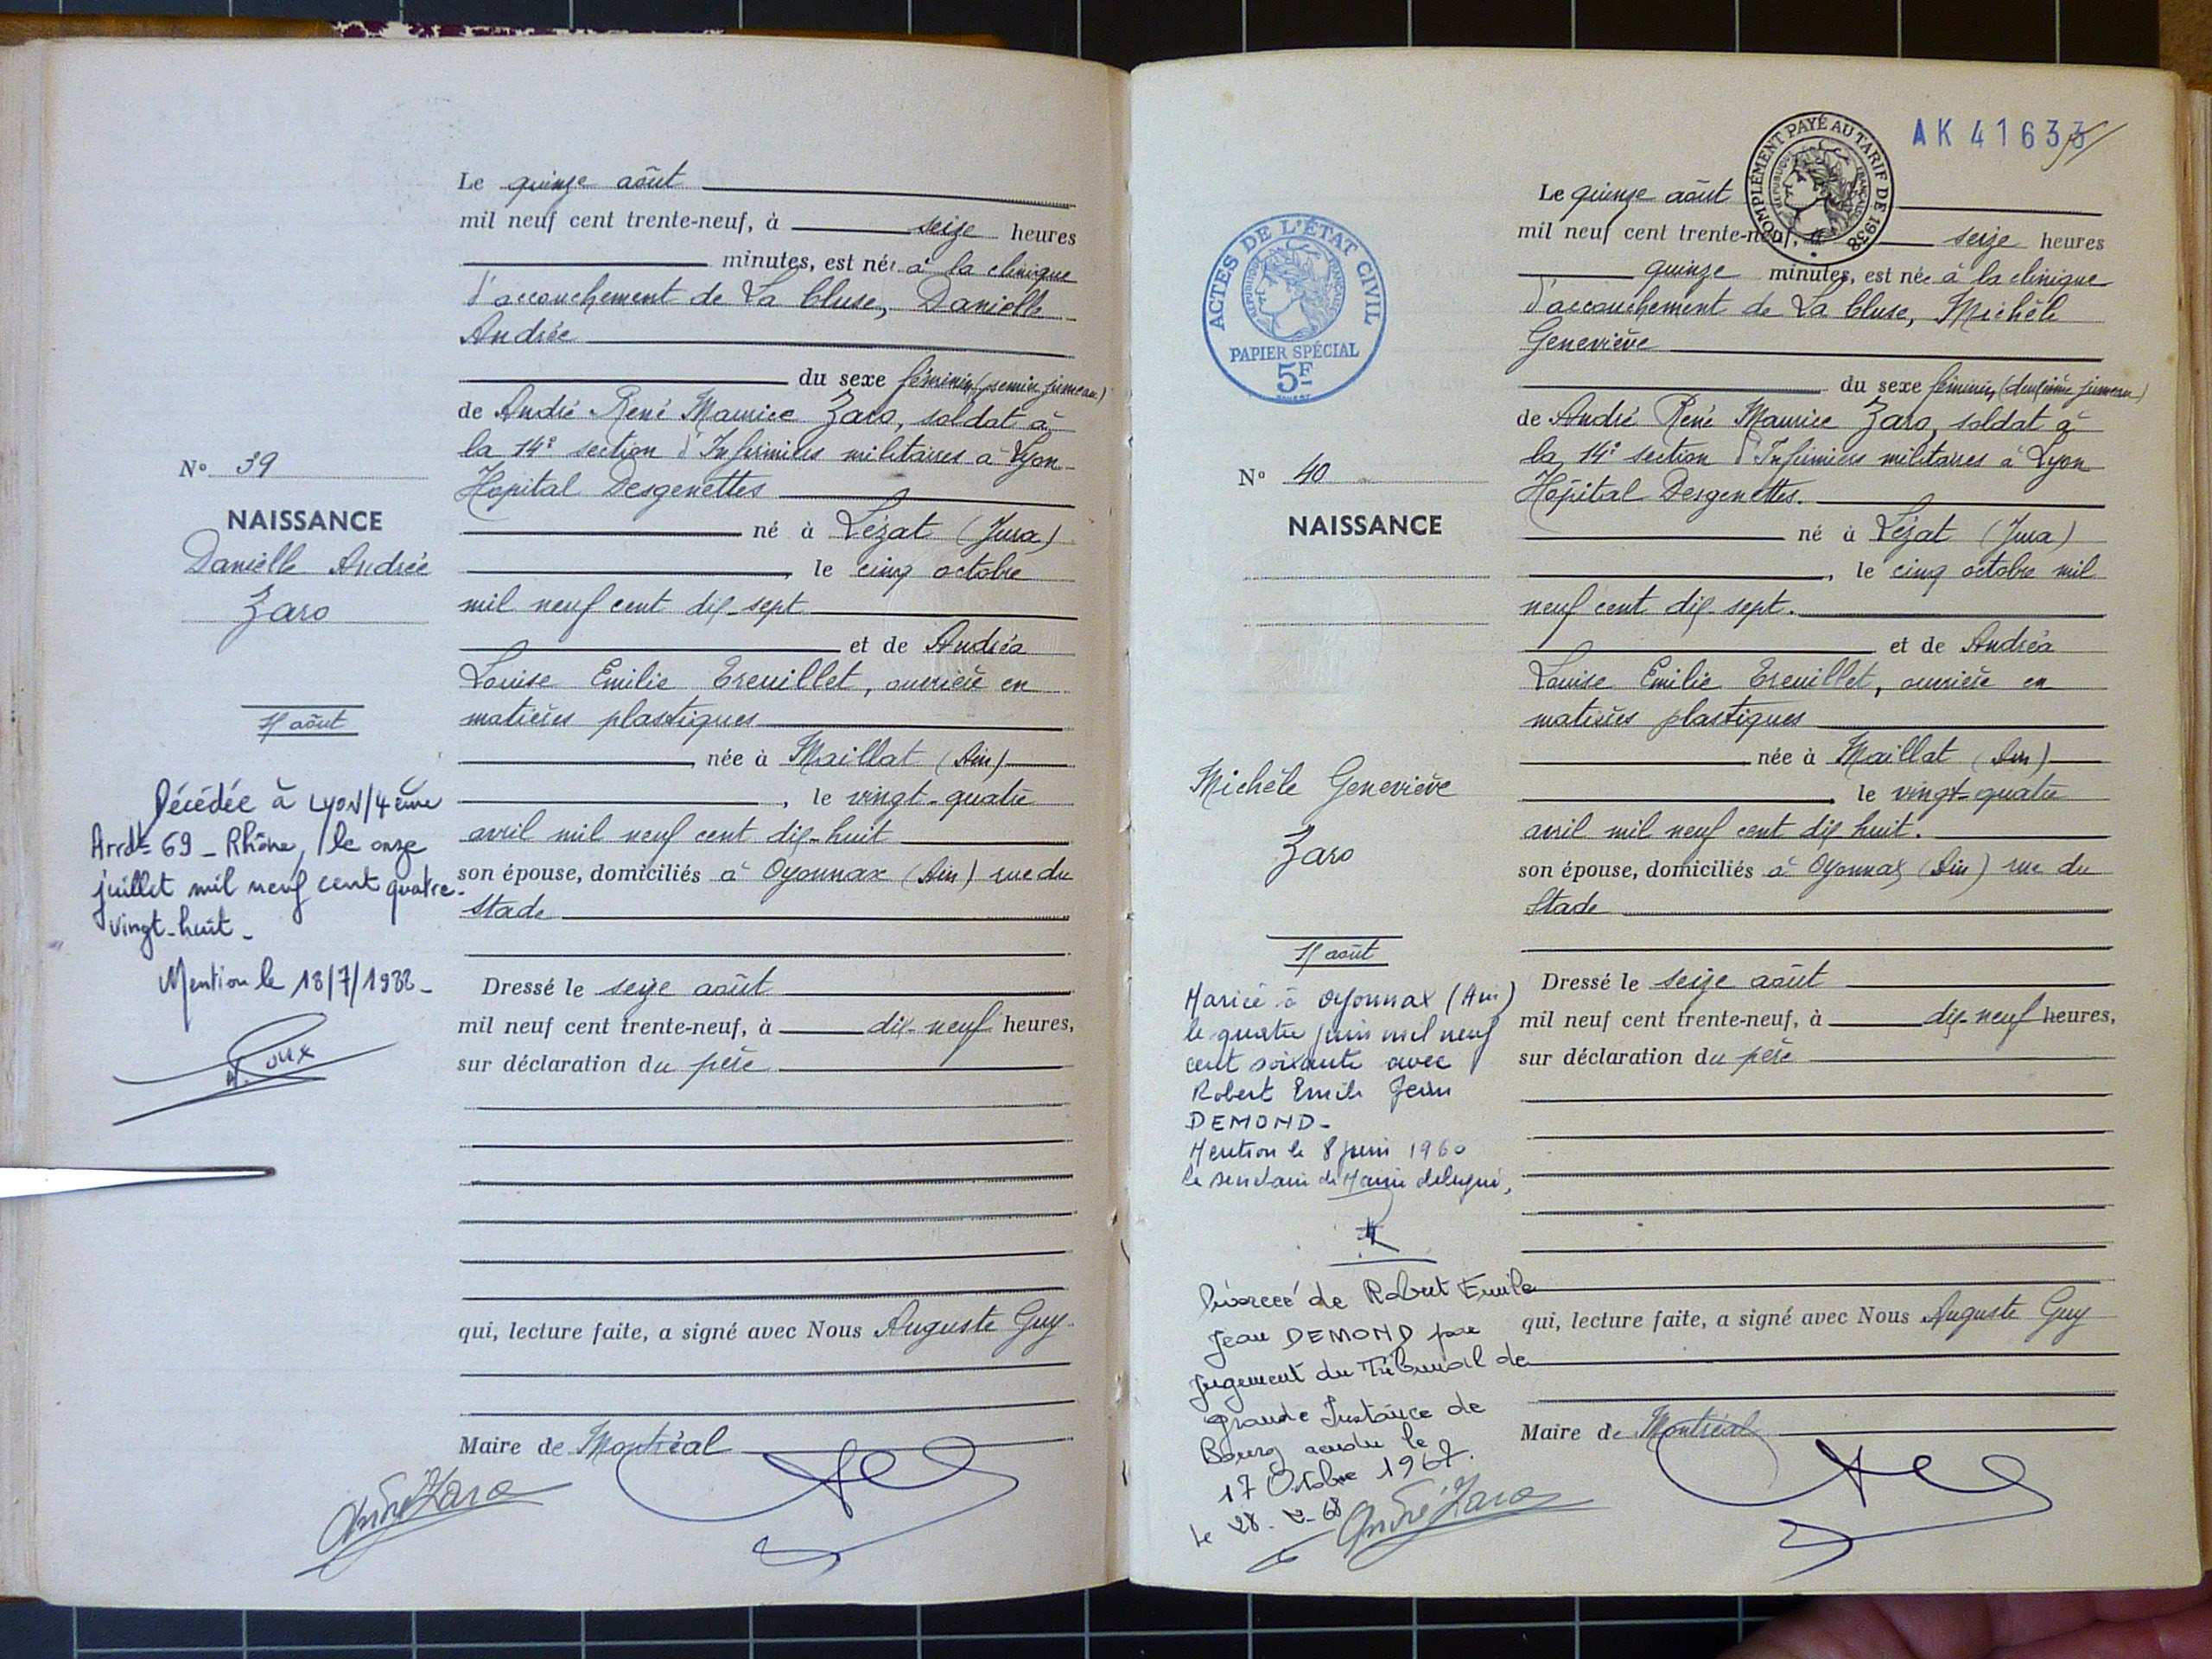 Le quinze août
mil neuf cent trente-neuf, à seize heures
minutes, est née à la clinique
d'accouchement de La Cluse, Danielle
Andrée
du sexe féminin (premier jumeau)
de André René Maurice Zaro, soldat à
la 14e section d'Infirmiers militaires à Lyon
Hôpital Desgenettes
né à Lézat (Jura)
, le cinq octobre
mil neuf cent dix-sept
et de Andréa
Louise Emilie Treuillet, ouvrière en
matières plastiques
née à Maillat (Ain)
, le vingt-quatre
avril mil neuf cent dix-huit
son épouse, domiciliés à Oyonnax (Ain) rue du
Stade
Dressé le seize août
mil neuf cent trente-neuf, à dix-neuf heures,
sur déclaration du père
qui, lecture faite, a signé avec Nous Auguste Guy
Maire de Montréal
André Zaro
N° 39
NAISSANCE
Danielle Andrée
Zaro
août
Décédée à LYON/4ème
Arrdt- 69 - Rhône, le onze
juillet mil neuf cent quatre-
vingt-huit -
Mention le 18/7/1988 -
AK 41633
COMPLÉMENT PAYÉ AU TARIF DE 1938
RÉPUBLIQUE FRANÇAISE
ACTES DE L'ÉTAT CIVIL
RÉPUBLIQUE FRANÇAISE
PAPIER SPÉCIAL
5F
Le quinze août
mil neuf cent trente-neuf, à seize heures
quinze minutes, est née à la clinique
d'accouchement de La Cluse, Michèle
Geneviève
du sexe féminin (deuxième jumeau)
de André René Maurice Zaro, soldat à
la 14e section d'Infirmiers militaires à Lyon
Hôpital Desgenettes.
né à Lézat (Jura)
, le cinq octobre mil
neuf cent dix-sept.
et de Andréa
Louise Emilie Treuillet, ouvrière en
matières plastiques
née à Maillat (Ain)
, le vingt-quatre
avril mil neuf cent dix huit.
son épouse, domiciliés à Oyonnax (Ain) rue du
Stade
Dressé le seize août
mil neuf cent trente-neuf, à dix-neuf heures,
sur déclaration du père
qui, lecture faite, a signé avec Nous Auguste Guy
Maire de Montréal
André Zaro
N° 40
NAISSANCE
Michèle Geneviève
Zaro
août
Mariée à Oyonnax (Ain)
le quatre juin mil neuf
cent soixante avec
Robert Emile Jean
DEMOND -
Mention le 8 juin 1960
le secrétaire de Mairie délégué,
Divorcée de Robert Emile
Jean DEMOND par
jugement du Tribunal de
grande Instance de
Bourg rendu le
17 Octobre 1967.